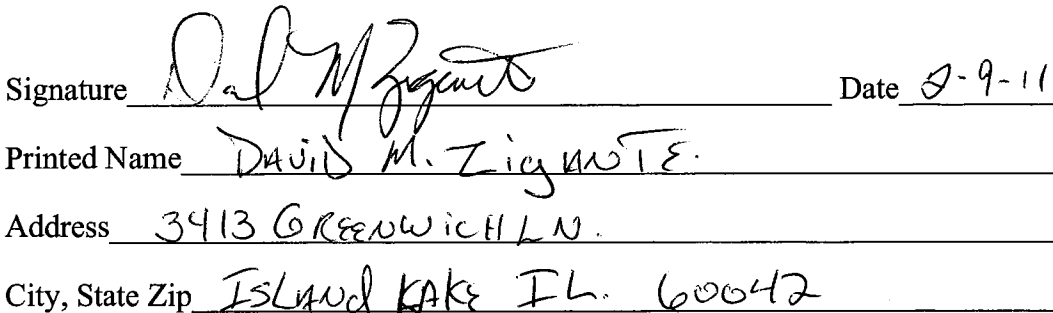 Signature David M Zigante Date 2-9-11
Printed Name DAViD M. ZigANTE.
Address 3413 GREENWicH LN.
City, State Zip ISLANd LAKE IL. 60042